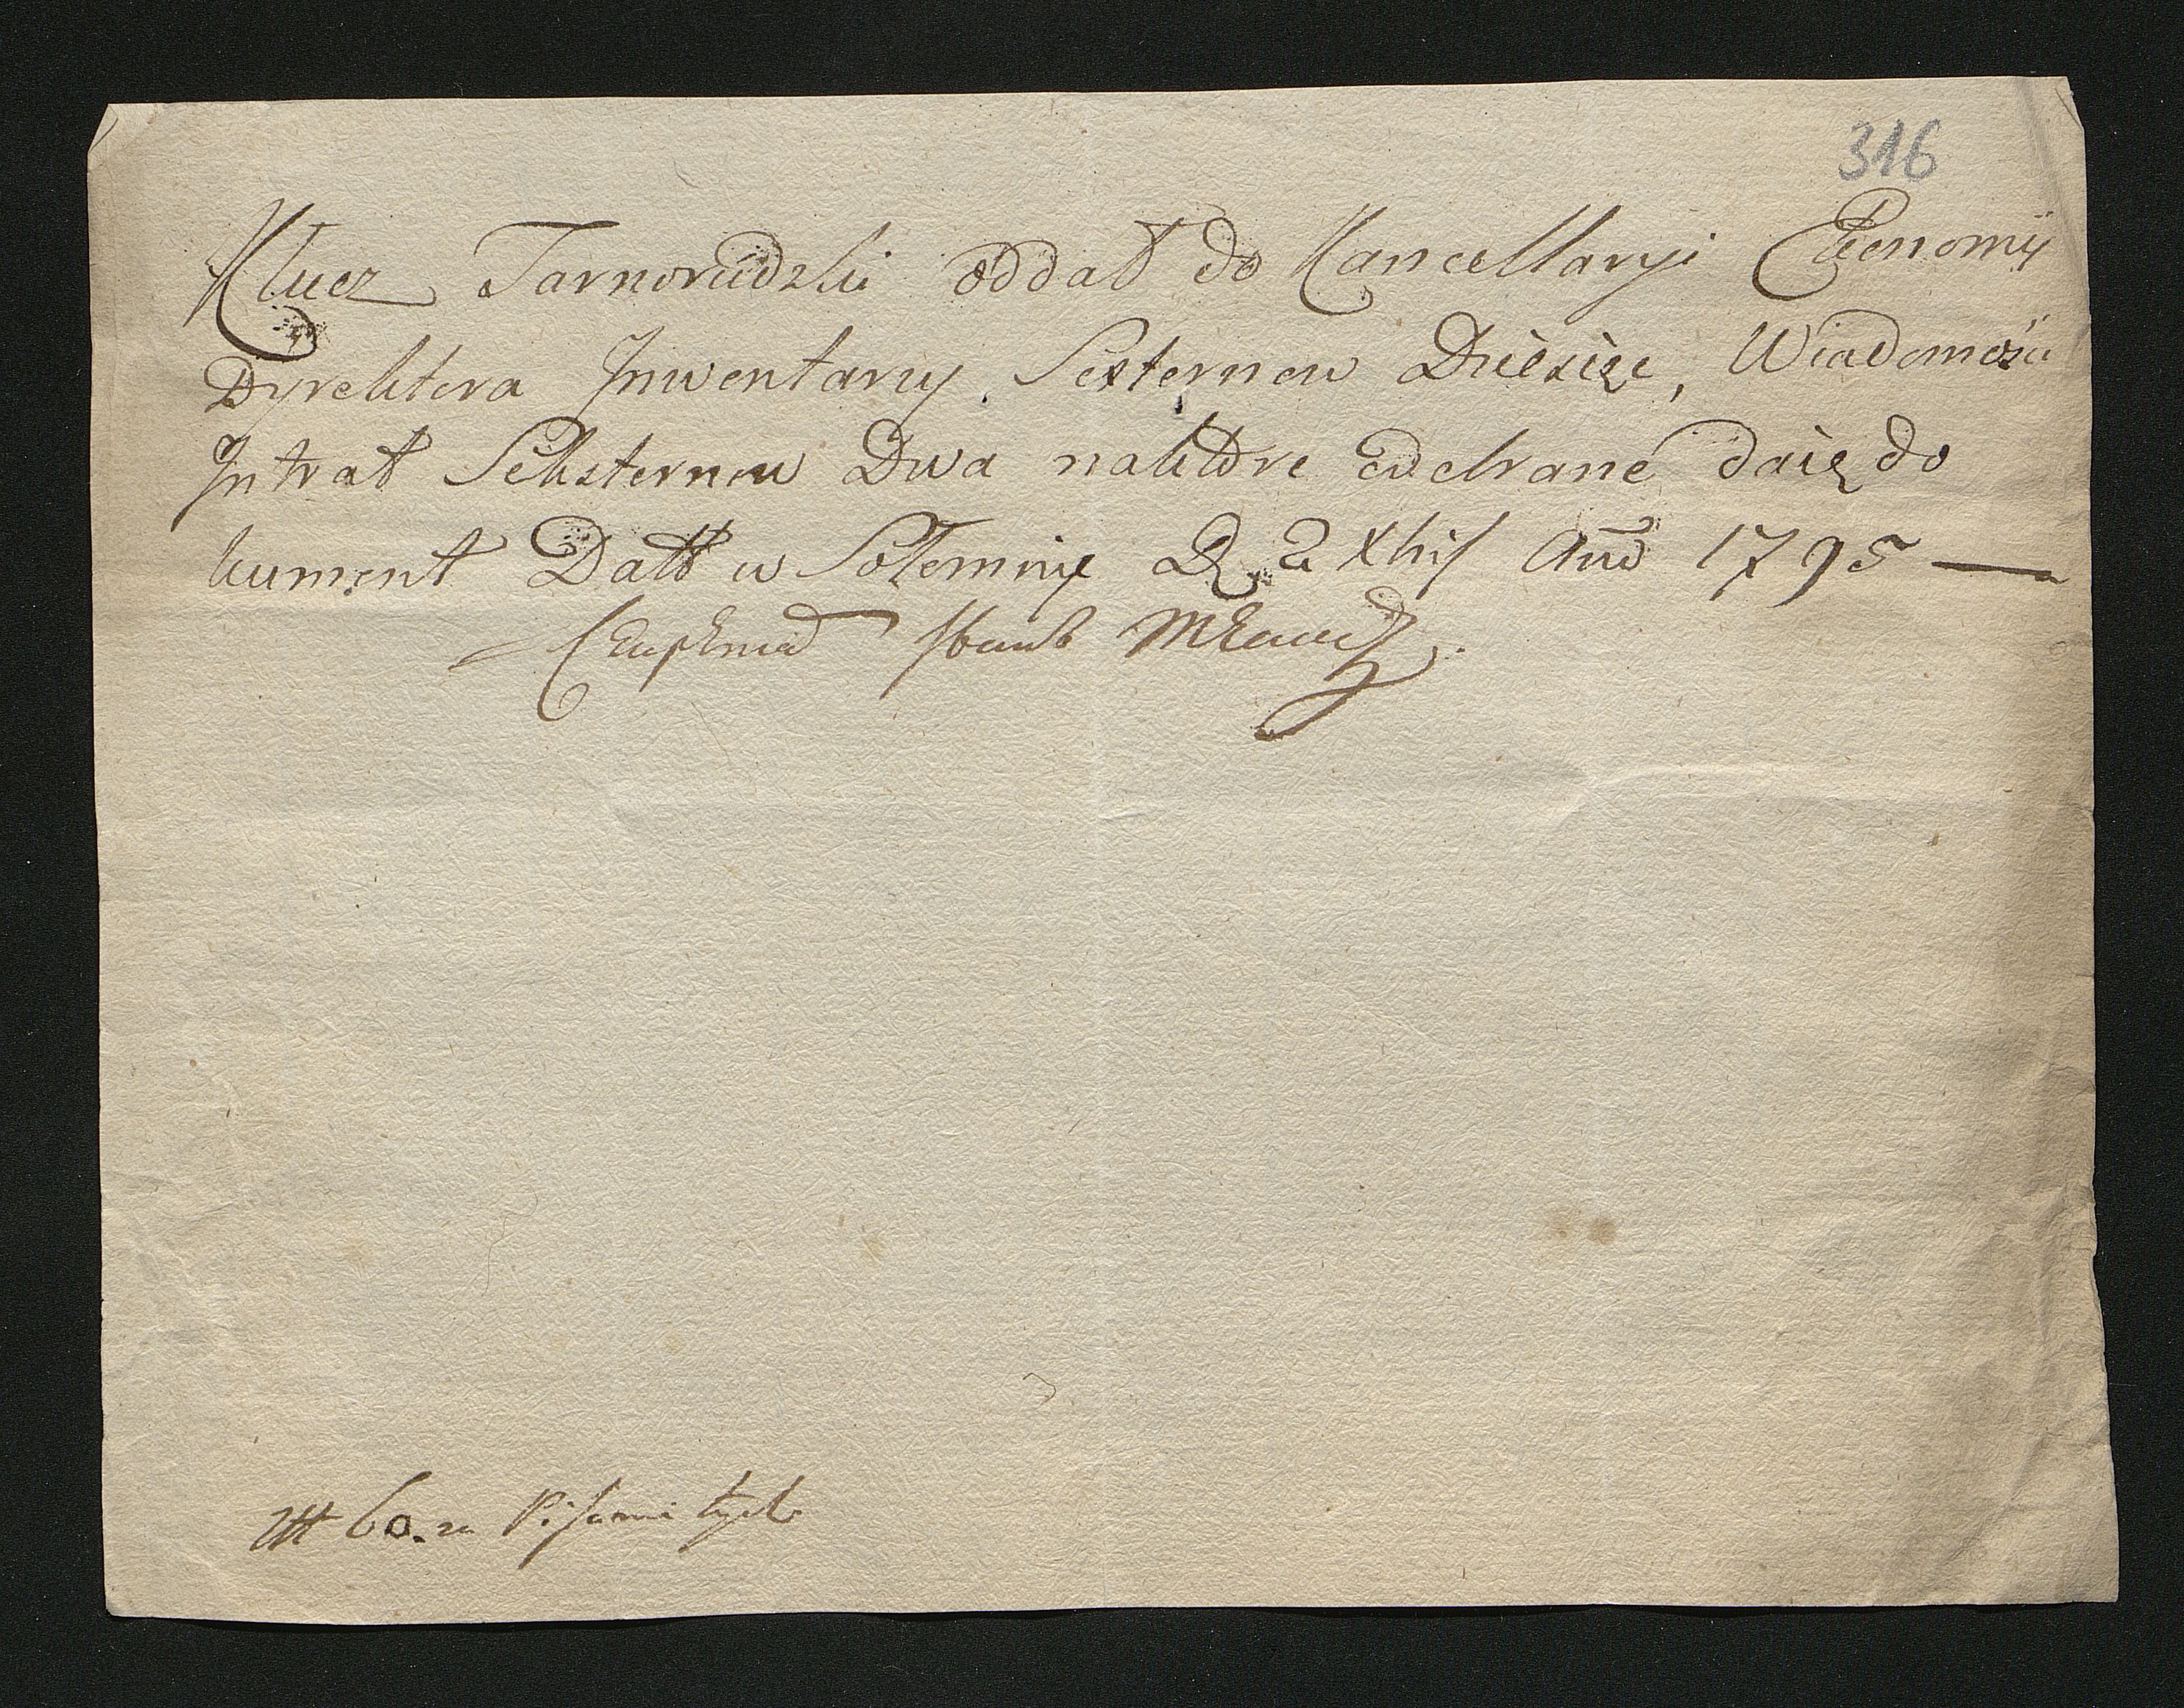 316
Klucz Tarnorudzki oddał do Kancellaryi Ekonomij
Dyrektora Jnwentarzy Sexternow Dziesięc, Wiadomości
Jntrat Seksternow Dwa naktore odebrane daię do
kument Datt w Sołominie D 2 Xbris Ano 1795 —
№ 60. za Pisami tych